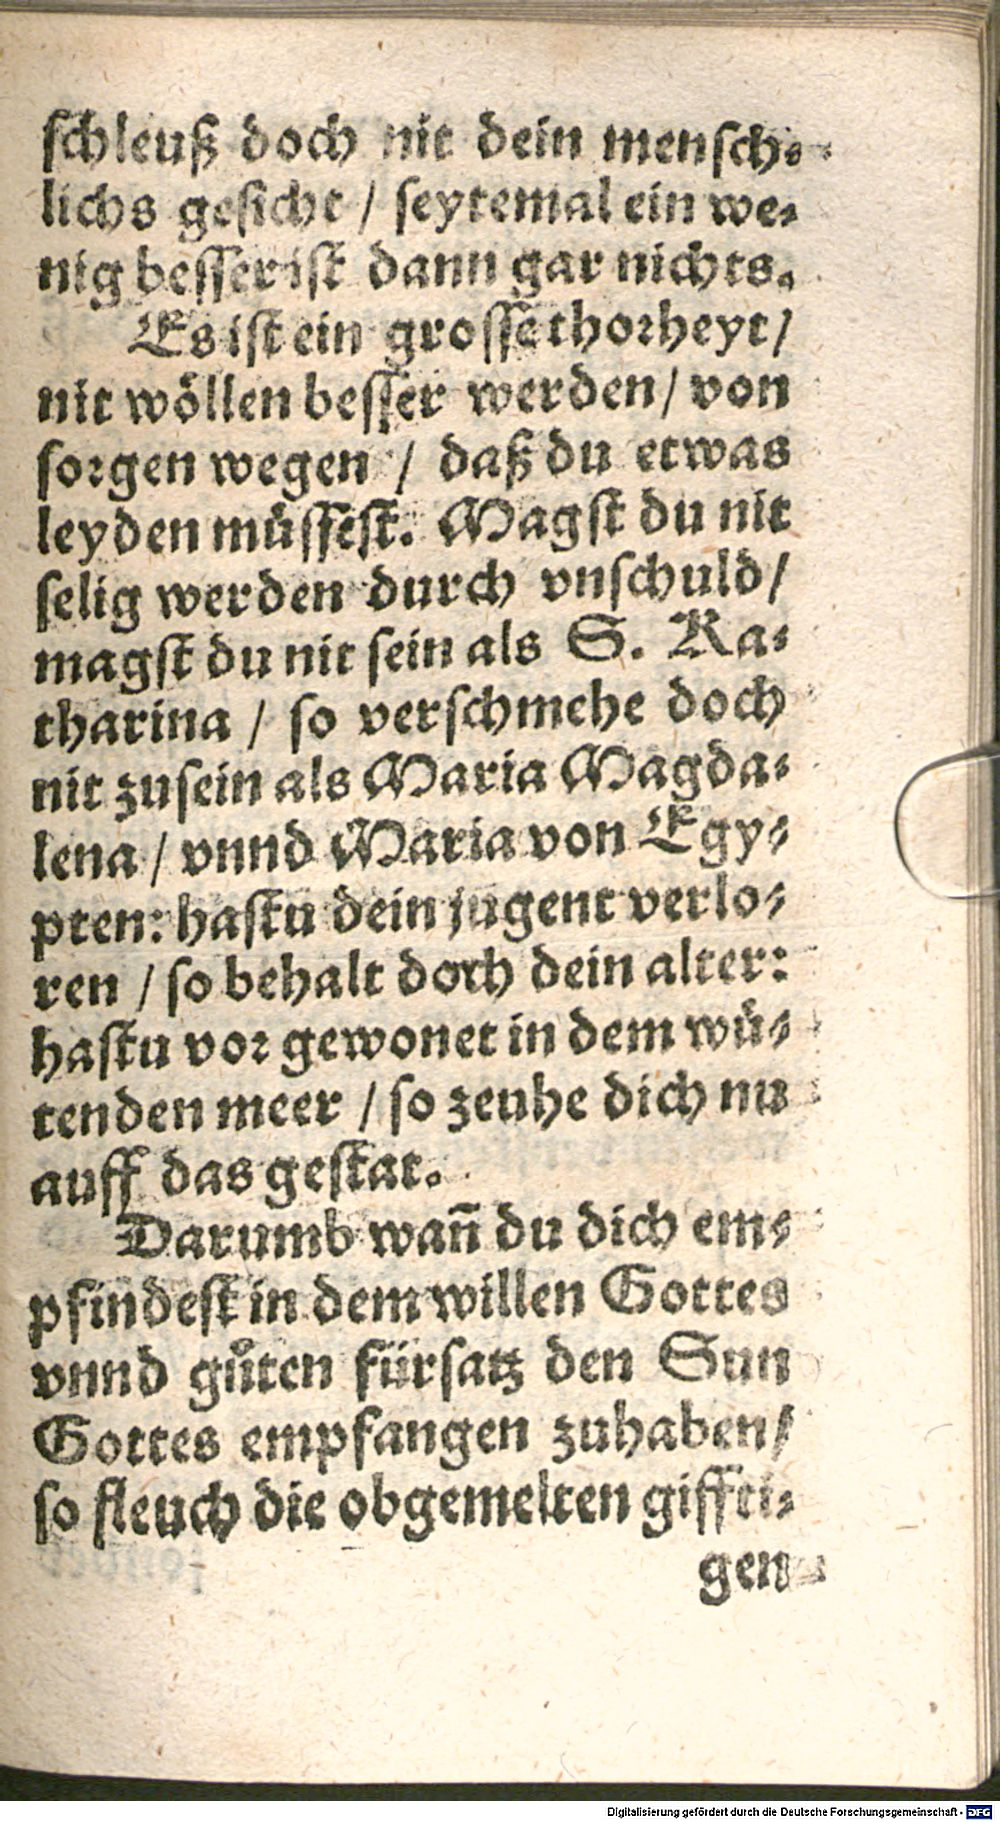 schleuß doch nit dein mensch⸗
lichs gesicht / seytemal ein we⸗
nig besser ist dann gar nichts.
Es ist ein grosse thorheyt /
nit wöllen besser werden / von
sorgen wegen / daß du etwas
leyden müssest. Magst du nit
selig werden durch vnschuld /
magst du nit sein als S. Ka⸗
tharina / so verschmehe doch
nit zusein als Maria Magda⸗
lena / vnnd Maria von Egy⸗
pten: hastu dein jugent verlo⸗
ren / so behalt doch dein alter:
hastu vor gewonet in dem wü⸗
tenden meer / so zeuhe dich nu
auff das gestat.
Darumb wañ du dich em⸗
pfindest in dem willen Gottes
vnnd gůten fürsatz den Sun
Gottes empfangen zuhaben /
so fleuch die obgemelten giffti⸗
gen
Digitalisierung gefördert durch die Deutsche Forschungsgemeinschaft - DFG